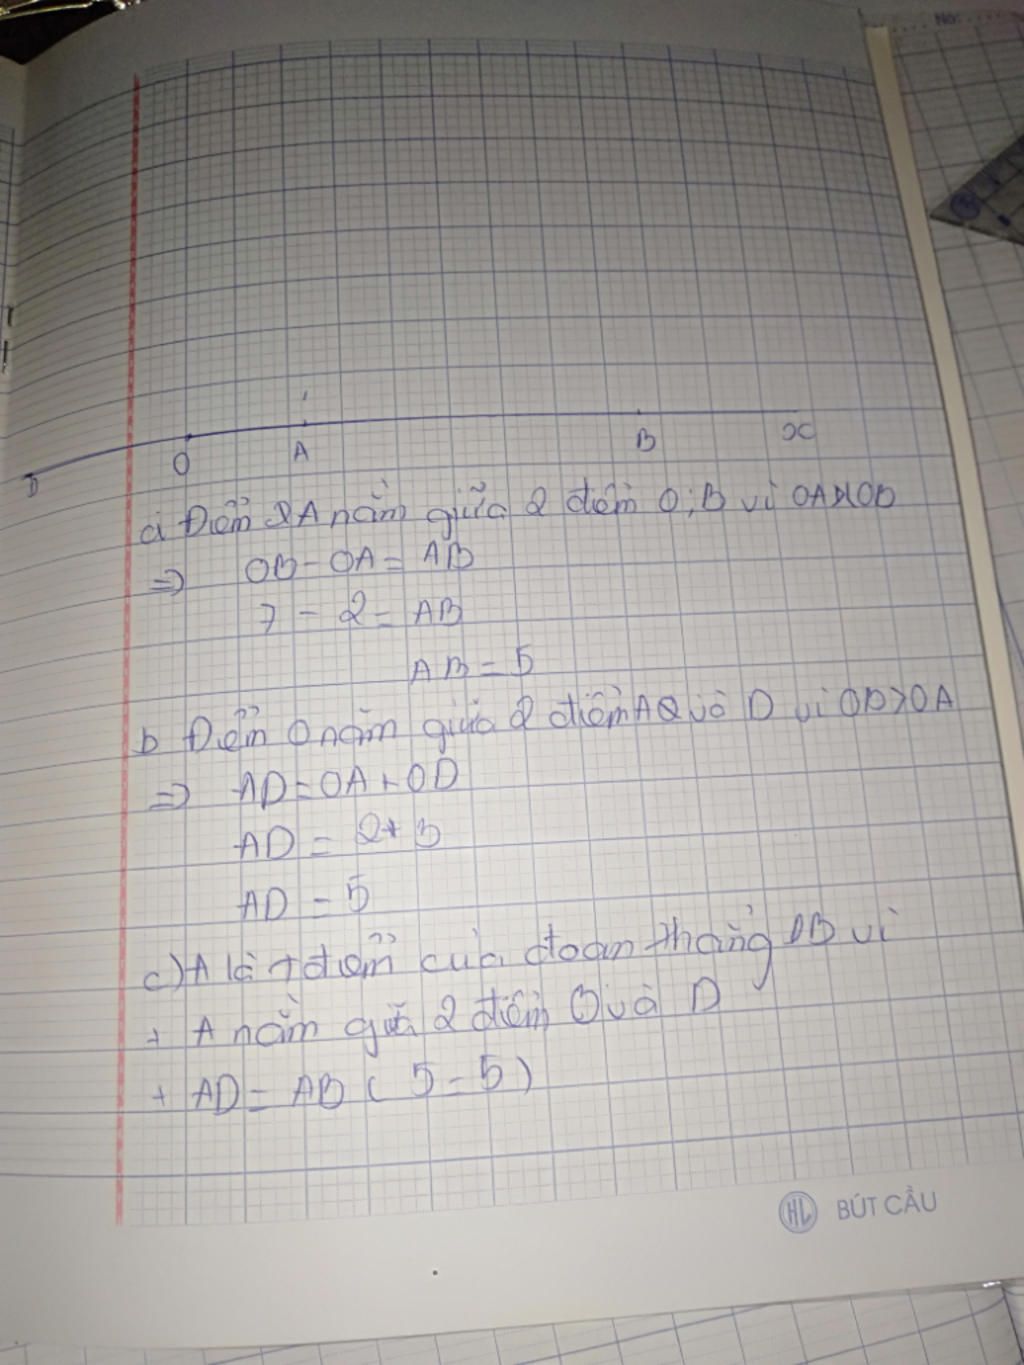 No:
D O A B x
a Điểm A nằm giữa 2 điểm O; B vì OA<OB
=> OB - OA = AB
7 - 2 = AB
AB = 5
b Điểm O nằm giữa 2 điểm A và D vì OD>OA
=> AD = OA + OD
AD = 2+ 3
AD = 5
c) A là điểm của đoạn thẳng DB vì
+ A nằm giữa 2 điểm B và D
+ AD = AB ( 5 = 5 )
HL BÚT CẦU